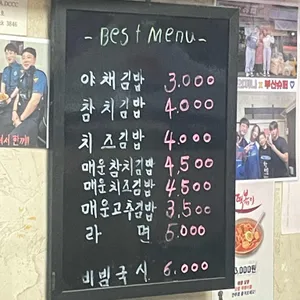 -Best Menu-
야채김밥 3.000
참치김밥 4.000
치즈김밥 4.000
매운참치김밥 4,500
매운치즈김밥 4,500
매운고추김밥 3,500
라 면 5.000
비빔국시 6.000
부산슈퍼
떡볶이
3,000원